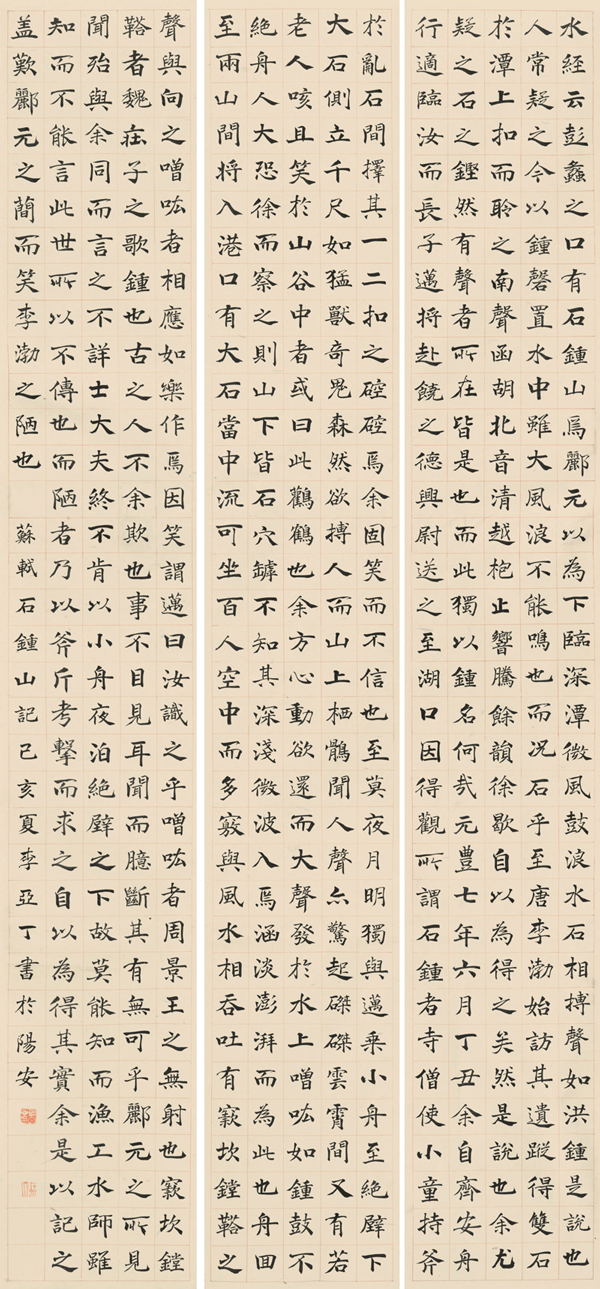 水經云彭蠡之口有石鍾山焉酈元以為下臨深潭微風鼓浪水石相搏聲如洪鍾是說也
人常疑之今以鍾磬置水中雖大風浪不能鳴也而况石乎至唐李渤始訪其遺蹤得雙石
於潭上扣而聆之南聲函胡北音清越枹止響騰餘韻徐歇自以為得之矣然是說也余尤
疑之石之鏗然有聲者所在皆是也而此獨以鍾名何哉元豊七年六月丁丑余自齊安舟
行適臨汝而長子邁將赴饒之德興尉送之至湖口因得觀所謂石鍾者寺僧使小童持斧
於亂石間擇其一二扣之硿硿焉余固笑而不信也至莫夜月明獨與邁乘小舟至絕壁下
大石側立千尺如猛獸奇鬼森然欲搏人而山上栖鶻聞人聲亦驚起磔磔雲霄間又有若
老人咳且笑於山谷中者或曰此鸛鶴也余方心動欲還而大聲發於水上噌吰如鍾鼓不
絕舟人大恐徐而察之則山下皆石穴罅不知其深淺微波入焉涵淡澎湃而為此也舟囬
至兩山間將入港口有大石當中流可坐百人空中而多竅與風水相吞吐有窾坎鏜鞳之
聲與向之噌吰者相應如樂作焉因笑謂邁曰汝識之乎噌吰者周景王之無射也窾坎鏜
鞳者魏莊子之歌鍾也古之人不余欺也事不目見耳聞而臆斷其有無可乎酈元之所見
聞殆與余同而言之不詳士大夫終不肯以小舟夜泊絕壁之下故莫能知而漁工水師雖
知而不能言此世所以不傳也而陋者乃以斧斤考擊而求之自以為得其實余是以記之
盖歎酈元之簡而笑李渤之陋也 蘇軾石鍾山記己亥夏李亞丁書於陽安